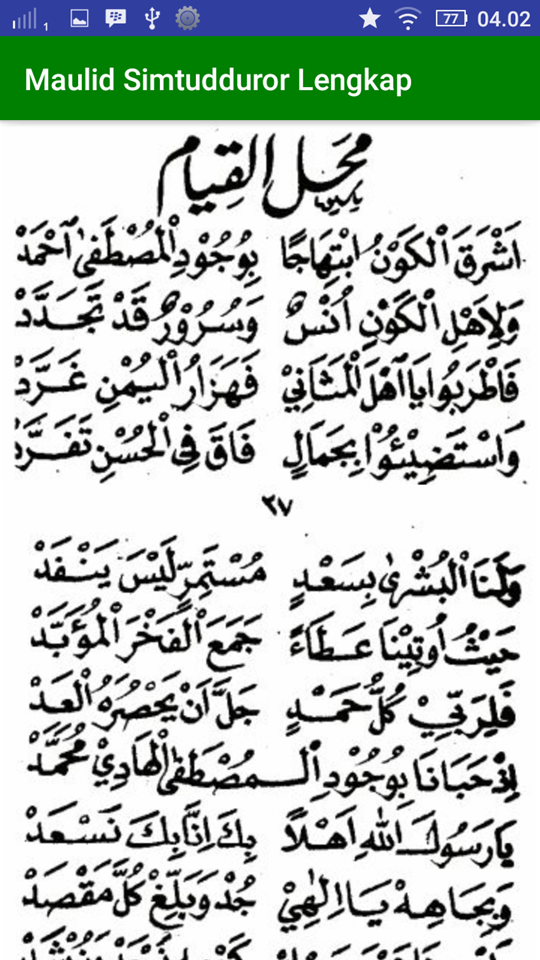 1 77 04.02
Maulid Simtudduror Lengkap
مَحَلُّ الْقِيَامِ
اَشْرَقَ الْكَوْنُ ابْتِهَاجًا بِوُجُودِ الْمُصْطَفَى احْمَدْ
وَلِاَهْلِ الْكَوْنِ اُنْسٌ وَسُرُورٌ قَدْ تَجَدَّدْ
فَاطْرَبُوا يَا اَهْلَ الْمَثَانِيْ فَهَزَارُ الْيُمْنِ غَرَّدْ
وَاسْتَضِيْئُوْا بِجَمَالٍ فَاقَ فِي الْحُسْنِ تَفَرَّدْ
٢٧
وَلَنَا الْبُشْرَى بِسَعْدٍ مُسْتَمِرٍّ لَيْسَ يَنْفَدْ
حَيْثُ اُوتِيْنَا عَطَاءً جَمَعَ الْفَخْرَ الْمُؤَبَّدْ
فَلِرَبِّيْ كُلُّ حَمْدٍ جَلَّ اَنْ يَحْصُرَهُ الْعَدْ
اِذْ حَبَانَا بِوُجُودِ الْمُصْطَفَى الْهَادِيْ مُحَمَّدْ
يَا رَسُولَ اللهِ اَهْلًا بِكَ اِنَّا بِكَ نَسْعَدْ
وَبِجَاهِهْ يَا اِلٰهِيْ جُدْ وَبَلِّغْ كُلَّ مَقْصَدْ